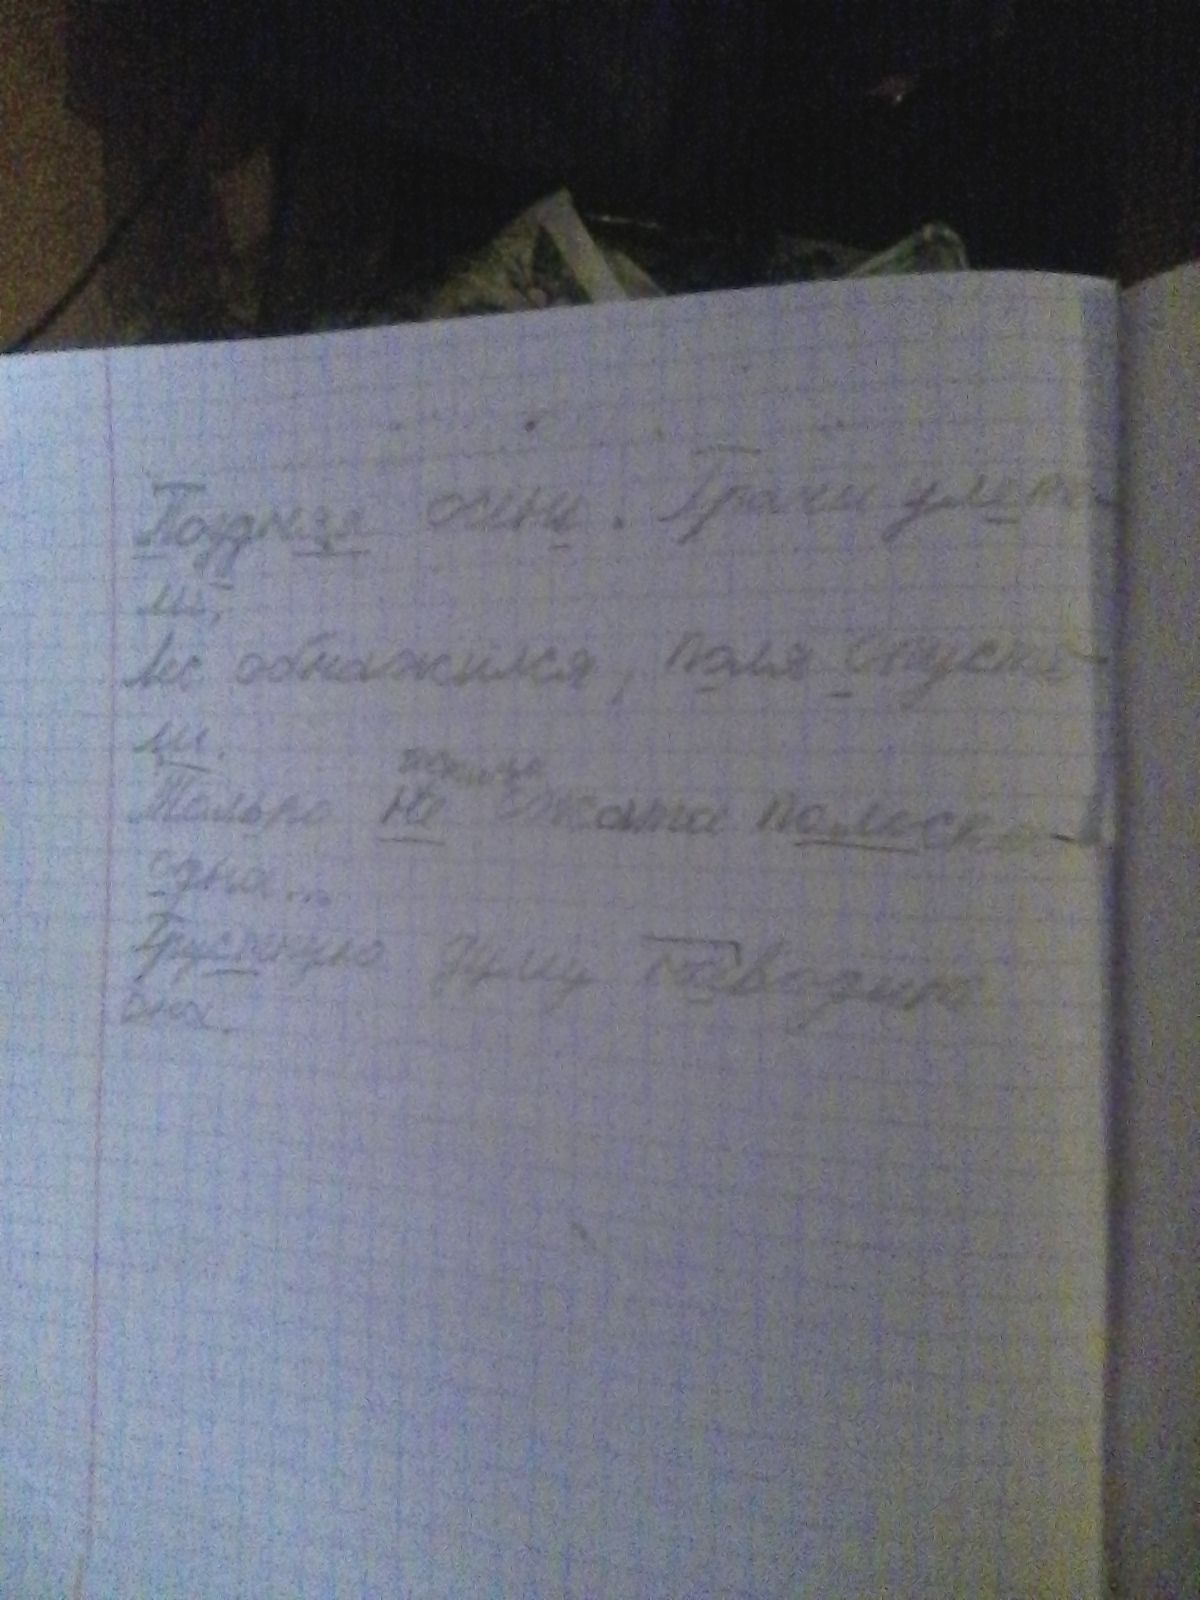 Поздняя осень. Грачи улете-
ли,
Лес обнажился, поля опусте-
ли.
Только не сжата полоска
одна...
Грустную думу наводит
она.